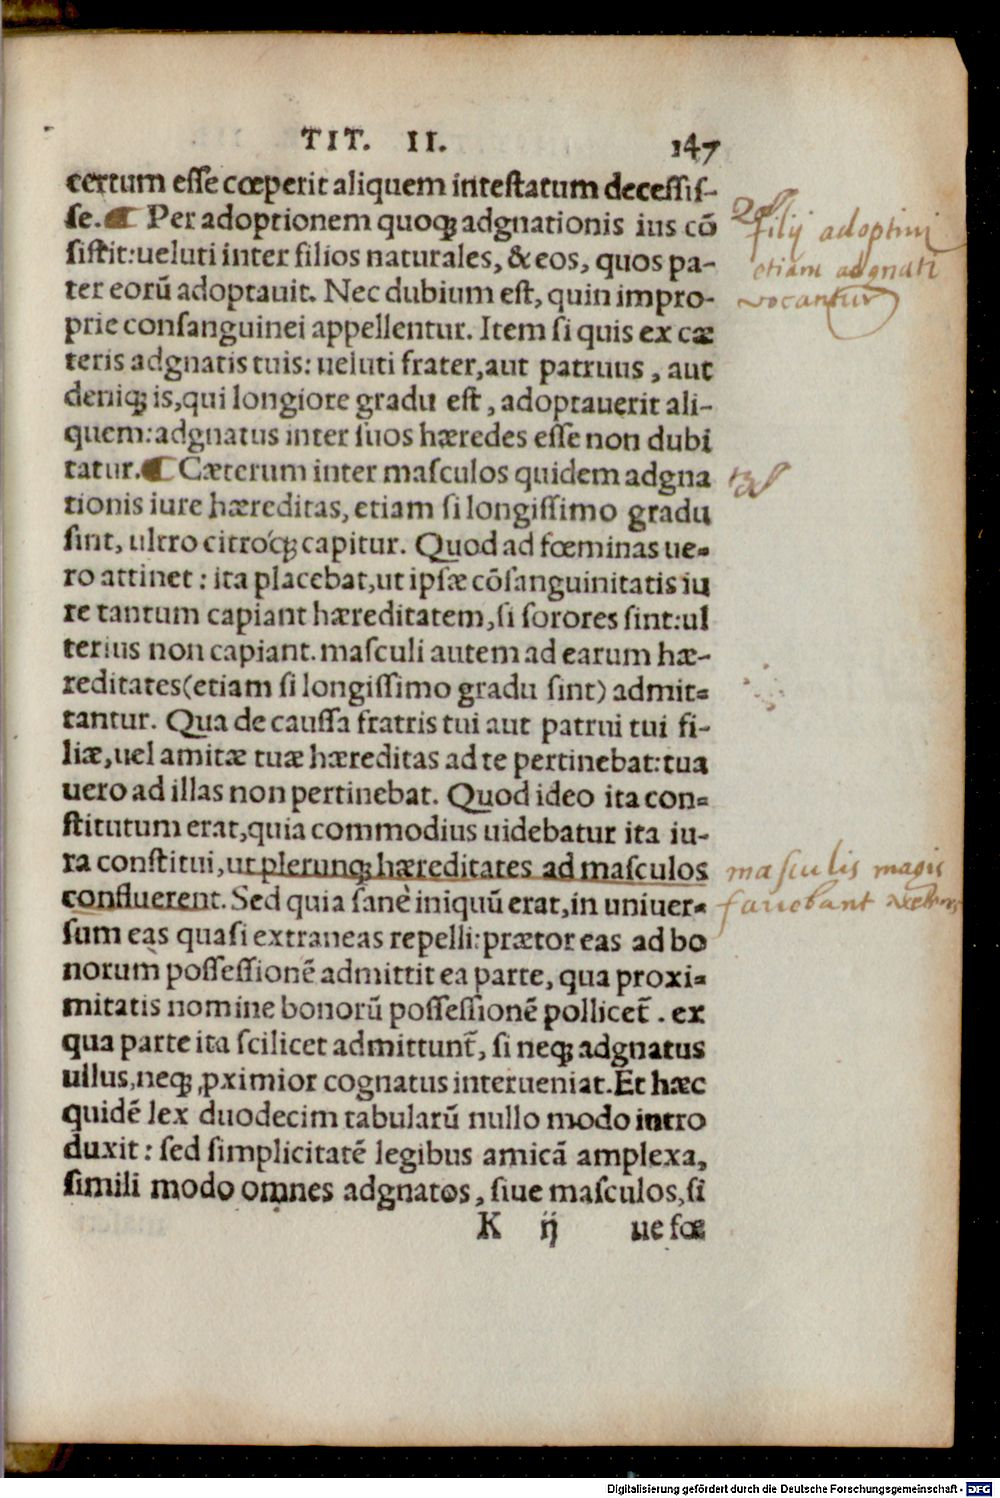 TIT. II. 147
certum esse cœperit aliquem intestatum decessis-
se. ¶ Per adoptionem quoq; adgnationis ius cō
sistit: ueluti inter filios naturales, & eos, quos pa-
ter eorū adoptauit. Nec dubium est, quin impro-
prie consanguinei appellentur. Item si quis ex cæ
teris adgnatis tuis: ueluti frater, aut patruus, aut
deniq; is, qui longiore gradu est, adoptauerit ali-
quem: adgnatus inter suos hæredes esse non dubi
tatur. ¶ Cæterum inter masculos quidem adgna
tionis iure hæreditas, etiam si longissimo gradu
sint, ultro citróq; capitur. Quod ad fœminas ue-
ro attinet: ita placebat, ut ipsæ cōsanguinitatis iu
re tantum capiant hæreditatem, si sorores sint: ul
terius non capiant. masculi autem ad earum hæ-
reditates (etiam si longissimo gradu sint) admit-
tantur. Qua de caussa fratris tui aut patrui tui fi-
liæ, uel amitæ tuæ hæreditas ad te pertinebat: tua
uero ad illas non pertinebat. Quod ideo ita con-
stitutum erat, quia commodius uidebatur ita iu-
ra constitui, ut plerunq; hæreditates ad masculos
confluerent. Sed quia sanè iniquū erat, in uniuer-
sum eas quasi extraneas repelli: prætor eas ad bo
norum possessionē admittit ea parte, qua proxi-
mitatis nomine bonorū possessionē pollicet̄. ex
qua parte ita scilicet admittunt̄, si neq; adgnatus
ullus, neq; ꝓximior cognatus interueniat. Et hæc
quidē lex duodecim tabularū nullo modo intro
duxit: sed simplicitatē legibus amicā amplexa,
simili modo omnes adgnatos, siue masculos, si
K ij ue fœ
filij adoptiui
etiam adgnati
vocantur
masculis magis
fauebant
Digitalisierung gefördert durch die Deutsche Forschungsgemeinschaft - DFG